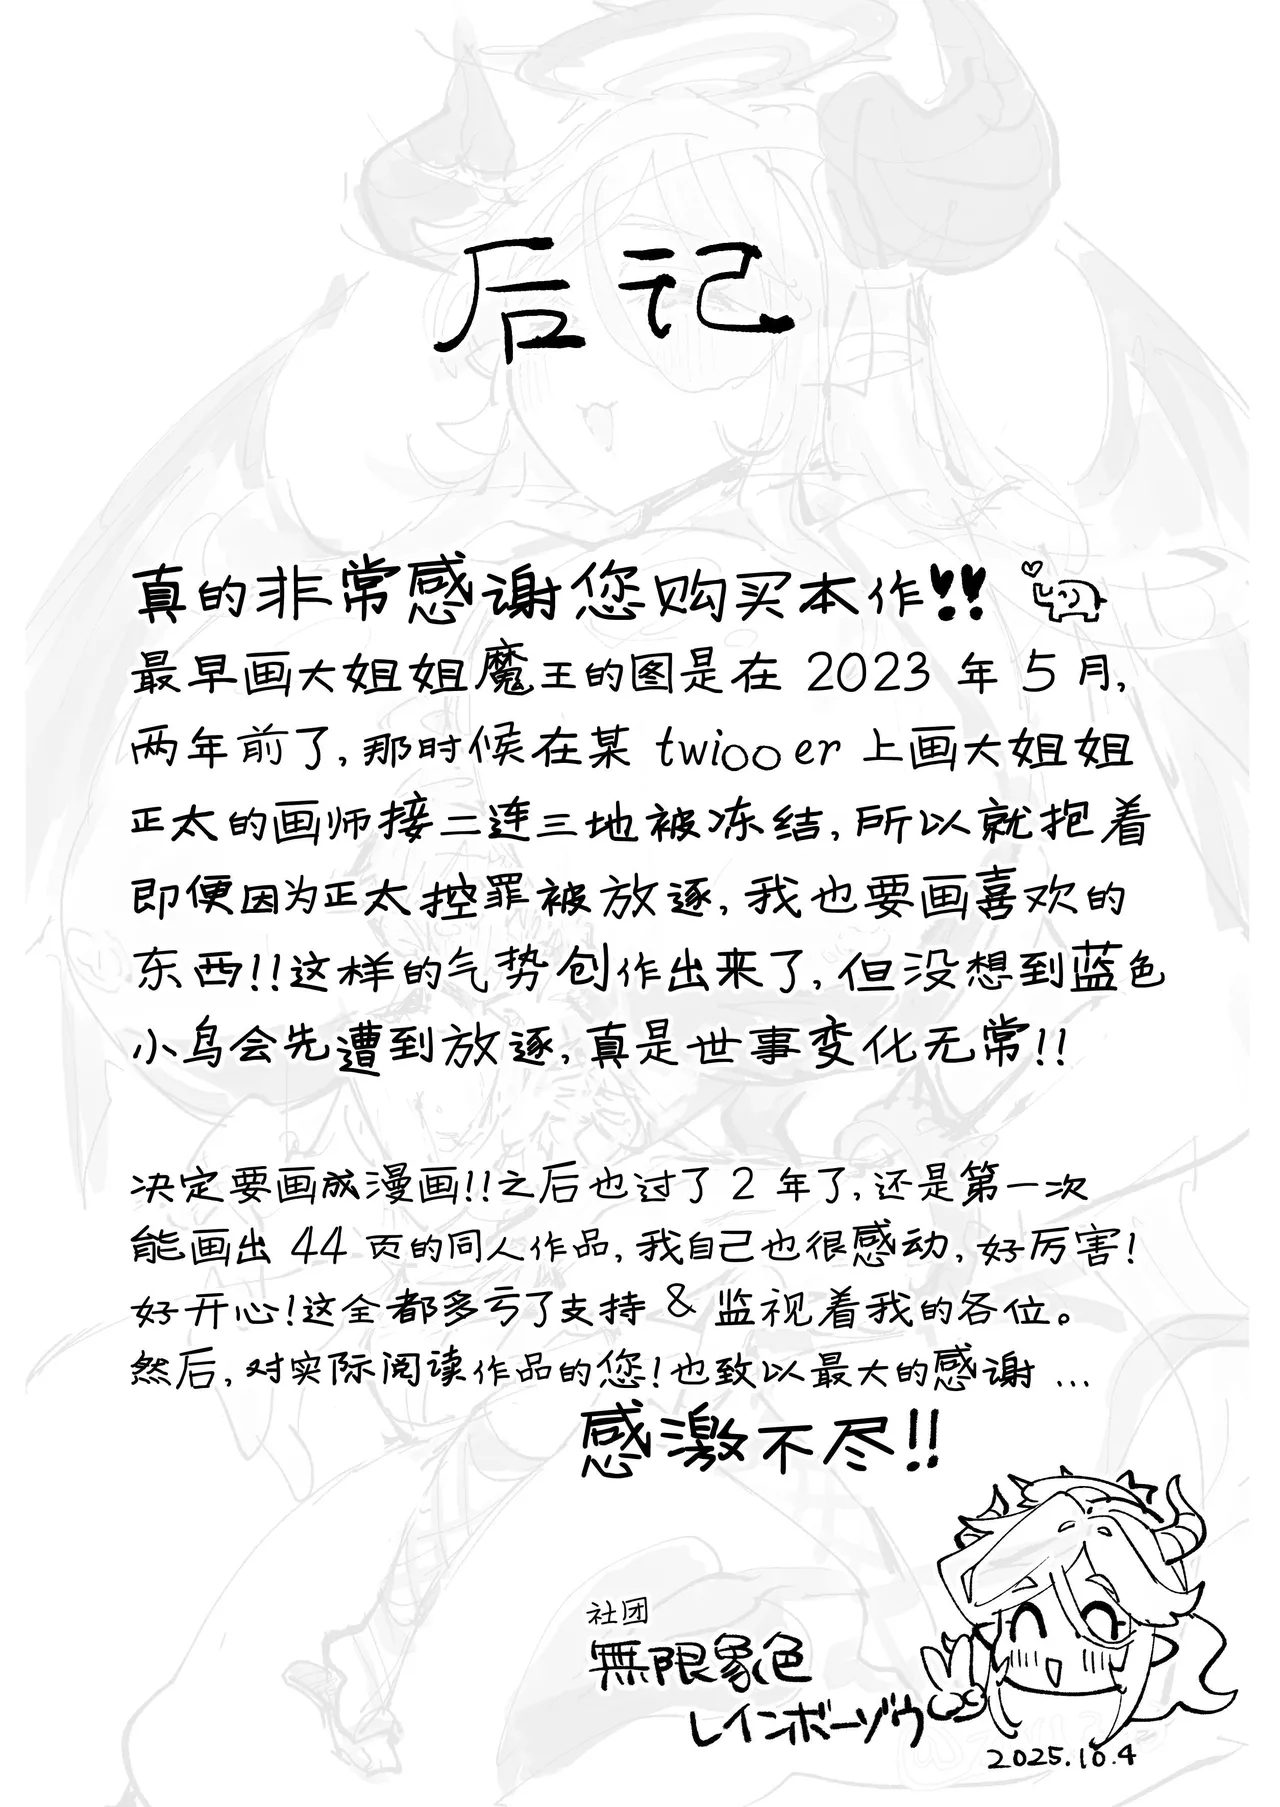 后记
真的非常感谢您购买本作!!
最早画大姐姐魔王的图是在 2023 年 5 月,
两年前了,那时候在某 twi○○er 上画大姐姐
正太的画师接二连三地被冻结,所以就抱着
即便因为正太控罪被放逐,我也要画喜欢的
东西!!这样的气势创作出来了,但没想到蓝色
小鸟会先遭到放逐,真是世事变化无常!!
决定要画成漫画!!之后也过了 2 年了,还是第一次
能画出 44 页的同人作品,我自己也很感动,好厉害!
好开心!这全都多亏了支持 & 监视着我的各位。
然后,对实际阅读作品的您!也致以最大的感谢...
感激不尽!!
社团
無限象色
レインボーゾウ
2025.10.4